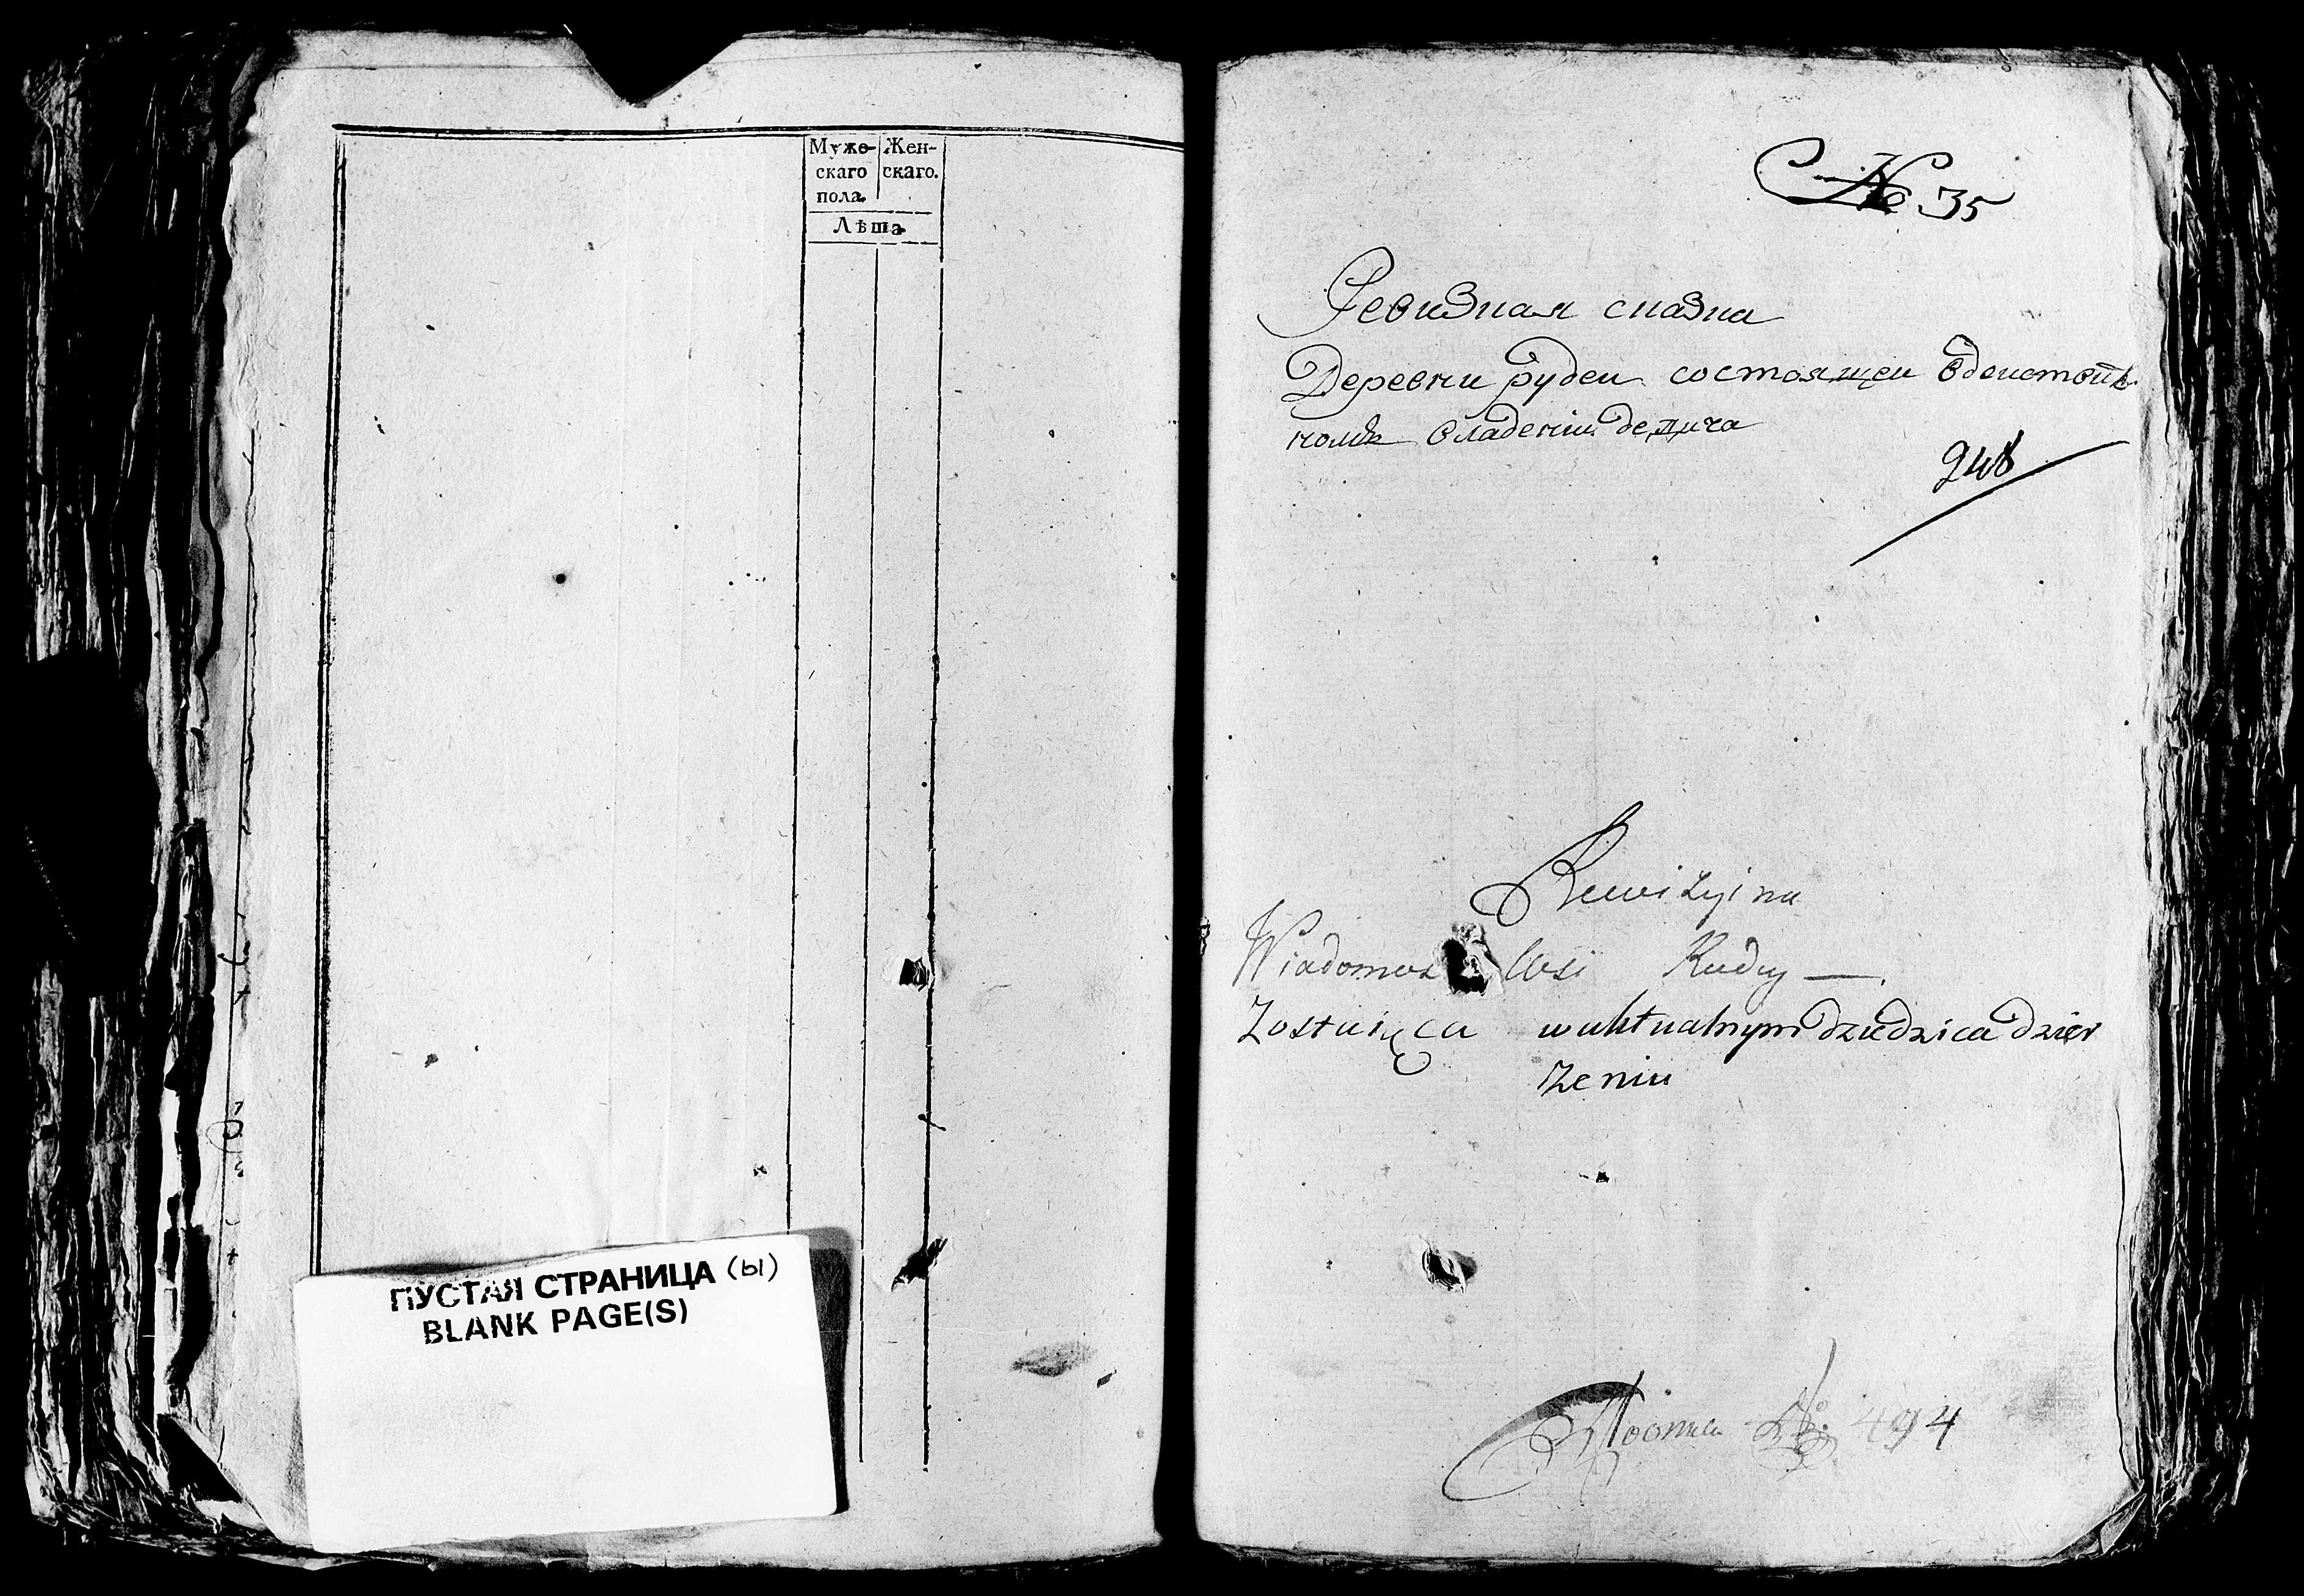 Муже- Жен-
скаго скаго.
пола.
Лѣта
ПУСТАЯ СТРАНИЦА (ы)
BLANK PAGE(S)
№ 35
Ревизная сказка
Деревни рудеи состоящеи
владении дедича
248
Rewizyina
Wiadomos Wsi Rudy —.
Zostaiąca w aktualnym dziedzica dzier
żeniu
№ 494